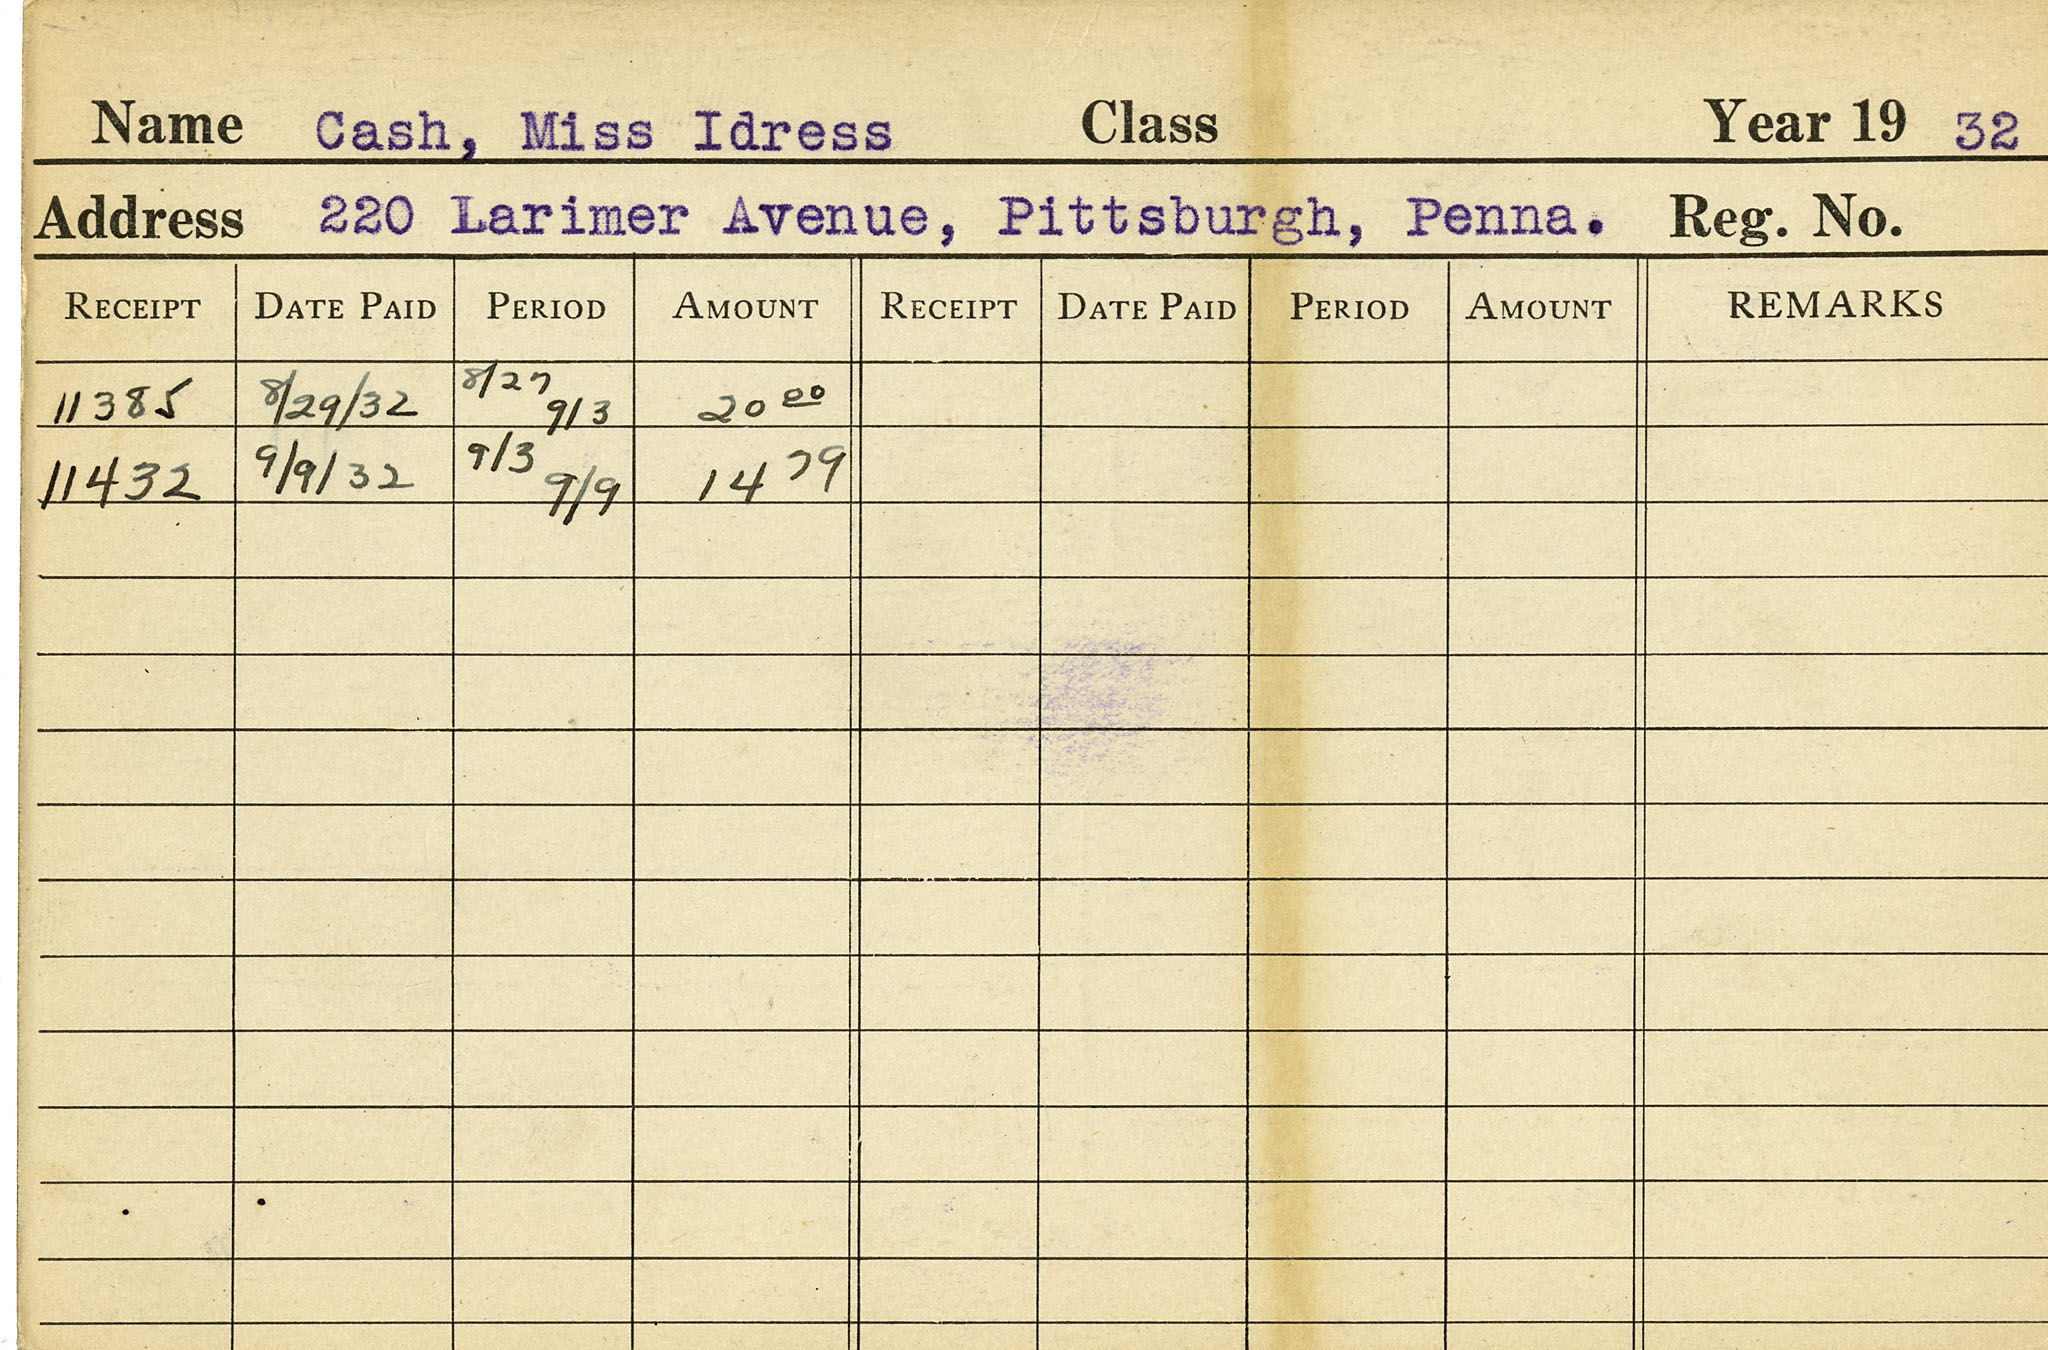 Name Cash, Miss Idress Class Year 19 32
Address 220 Larimer Avenue, Pittsburgh, Penna. Reg. No.
RECEIPT DATE PAID PERIOD AMOUNT RECEIPT DATE PAID PERIOD AMOUNT REMARKS
11385 8/29/32 8/27 9/3 20 00
11432 9/9/32 9/3 9/9 14 79